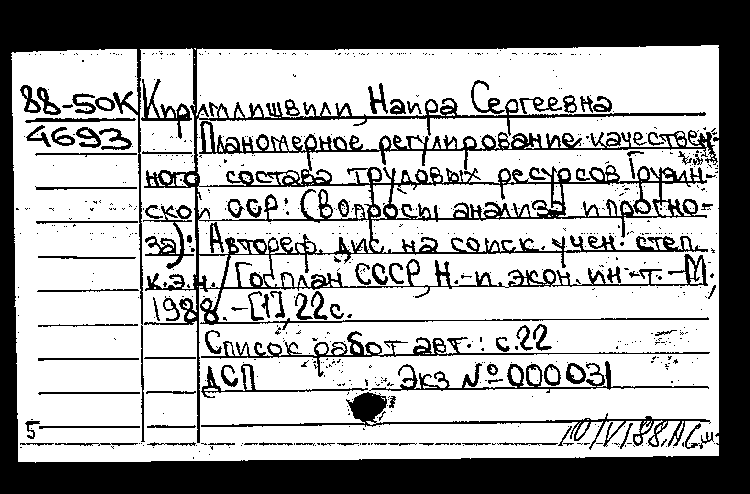 88-50К Киримлишвили, Наира Сергеевна
4693 Планомерное регулирование качествен-
ного состава трудовых ресурсов Грузин-
ской ССР: (Вопросы анализа и прогно-
за): Автореф. дис. на соиск. учен. степ.
к.э.н. / Госплан СССР, Н.-и. экон. ин-т. -М.,
1988. -[1], 22с.
Список работ авт.: с.22
ДСП Экз № 000031
5 10/V 88.